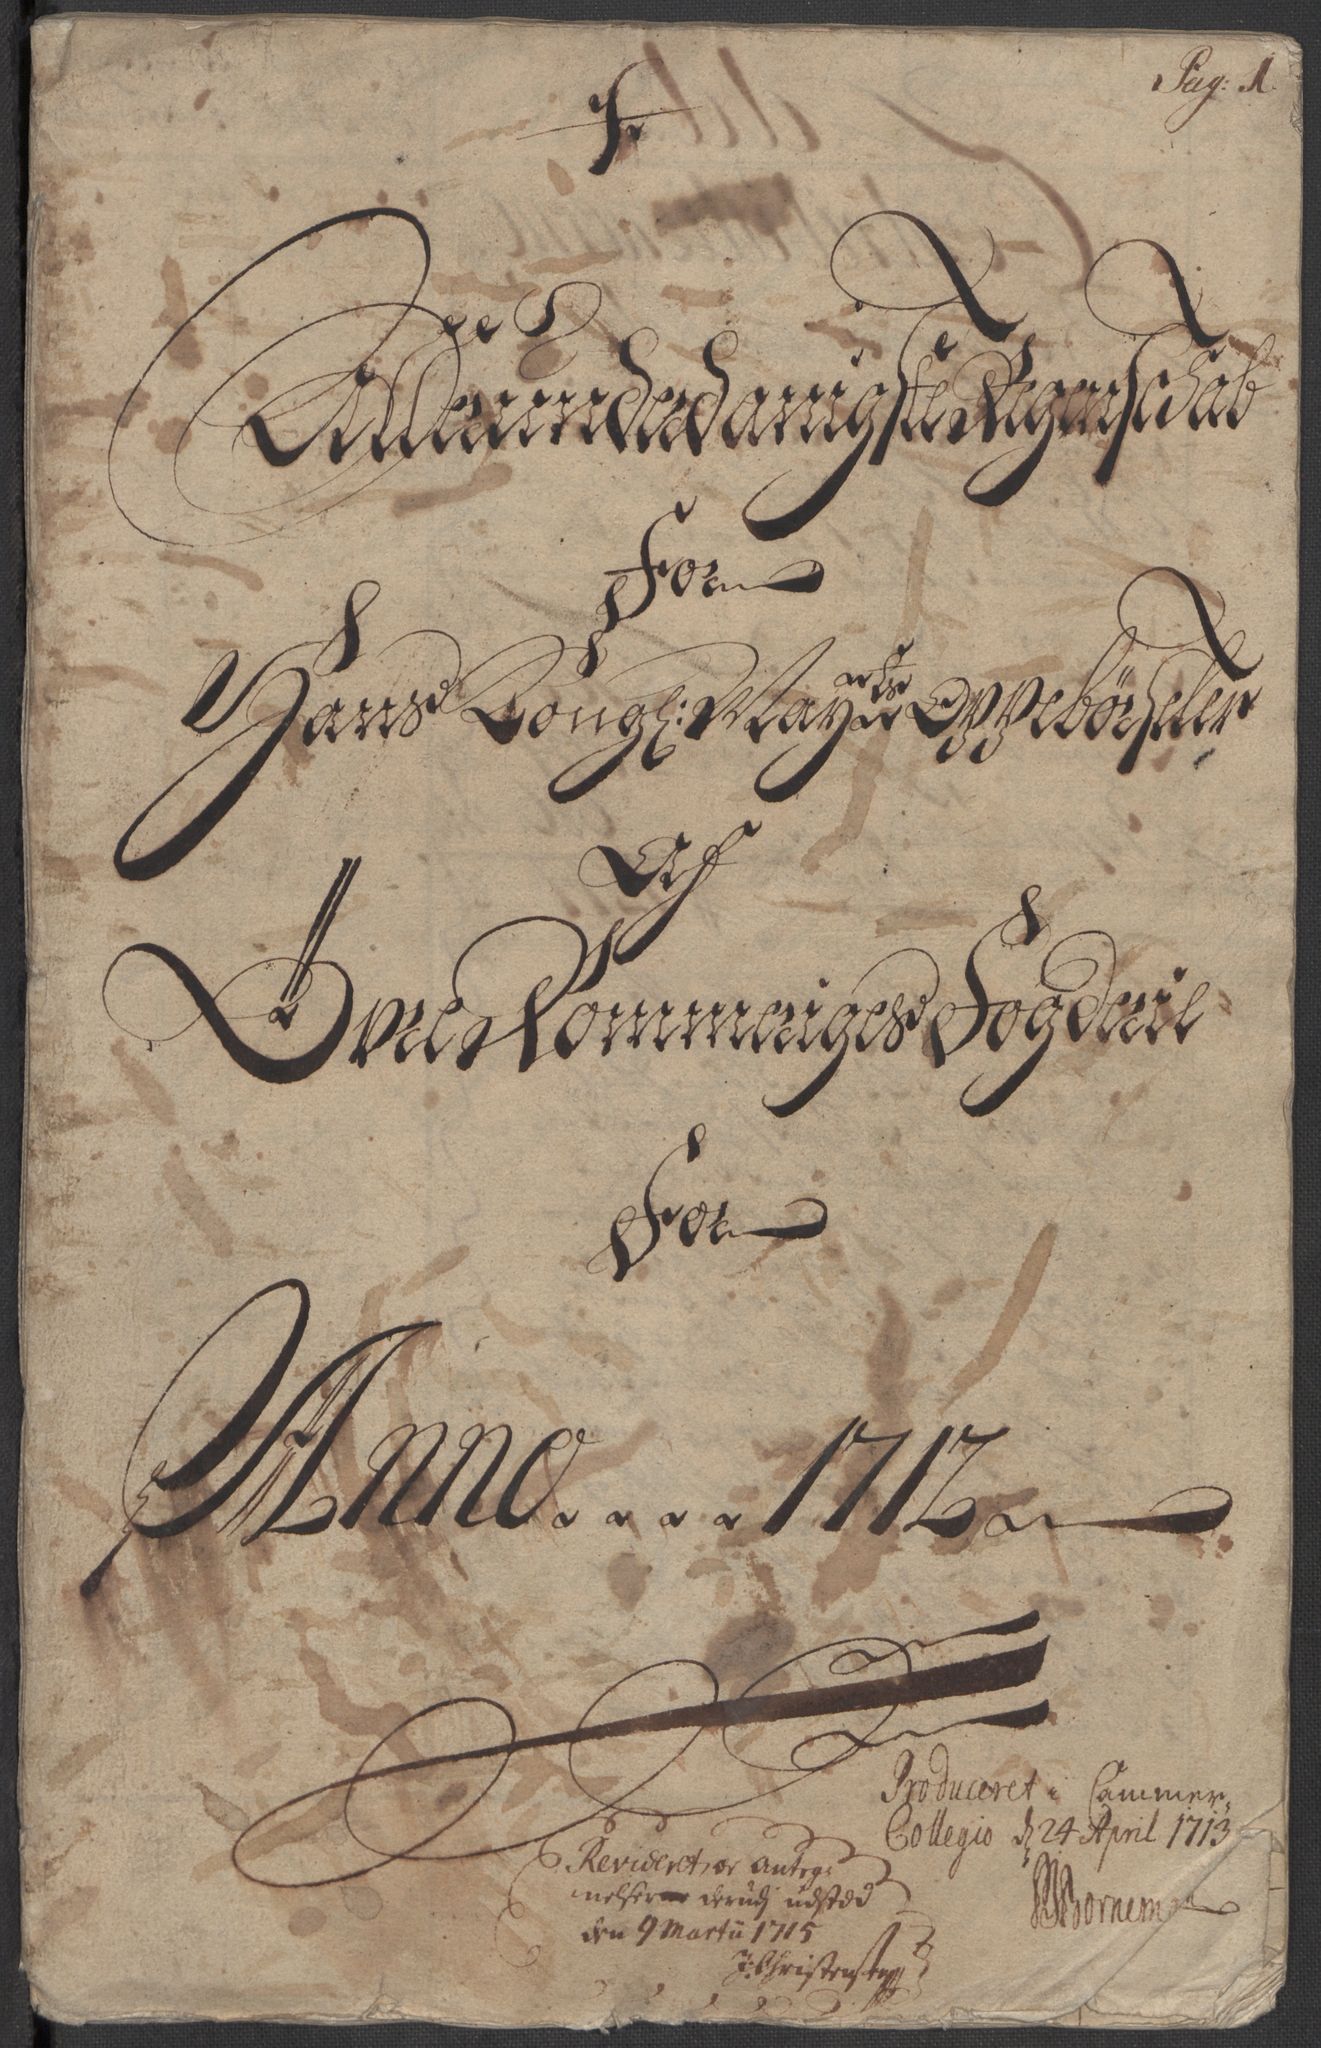 Pag: 1.
Allerunderdanigste Regenschab
For
Hans Kongl: Mayts Oppebörseler
Af
Øvre Rommeriges Fogderie
For
Anno.... 1712
Produceret i Cammer
Collegio d 24 April 1713
Bornemann
Revideret, oc Anteg
nelser derudj udstæd
den 9 Martii 1715
J: Christensen